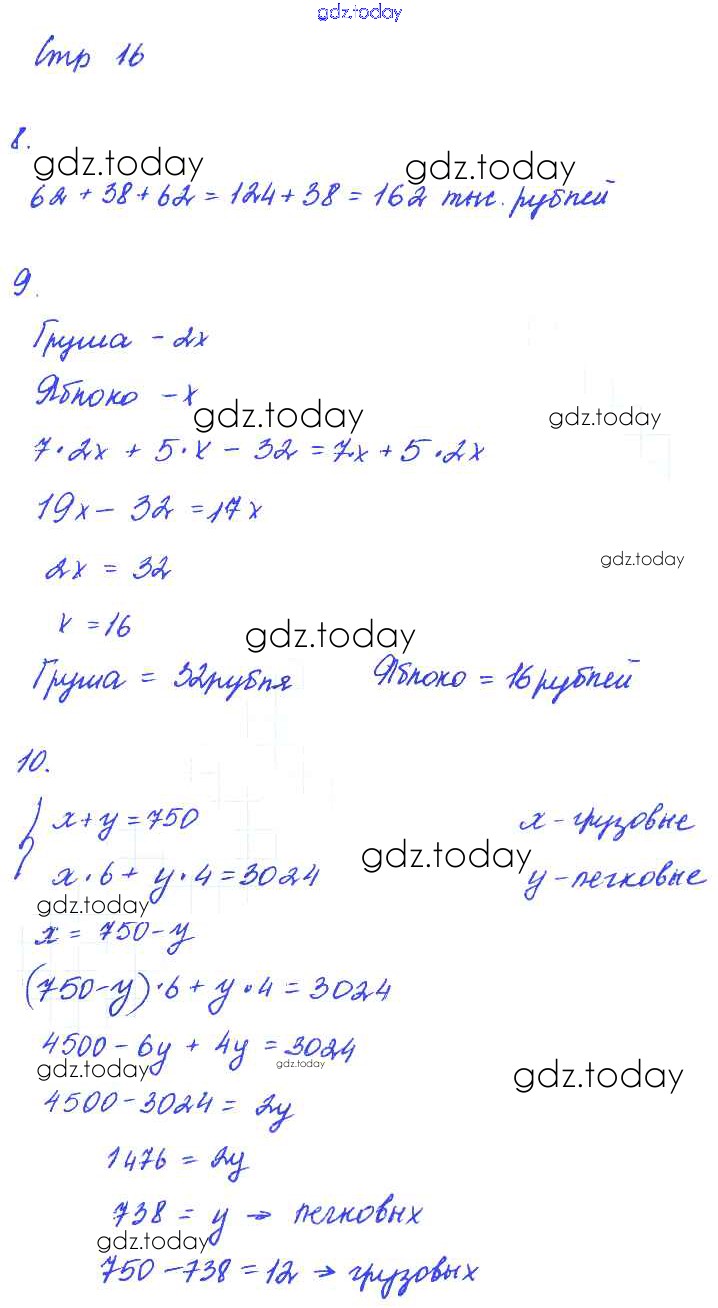 gdz.today
Стр 16
8.
gdz.today gdz.today
62 + 38 + 62 = 124 + 38 = 162 тыс. рублей
9.
Груша - 2x
Яблоко - x
gdz.today gdz.today
7·2x + 5·x - 32 = 7x + 5·2x
19x - 32 = 17x
gdz.today
2x = 32
x = 16
gdz.today
Груша = 32 рубля Яблоко = 16 рублей
10.
x + y = 750 x - грузовые
gdz.today
x·6 + y·4 = 3024 y - легковые
gdz.today
x = 750 - y
(750 - y)·6 + y·4 = 3024
4500 - 6y + 4y = 3024
gdz.today gdz.today gdz.today
4500 - 3024 = 2y
1476 = 2y
738 = y → легковых
gdz.today
750 - 738 = 12 → грузовых